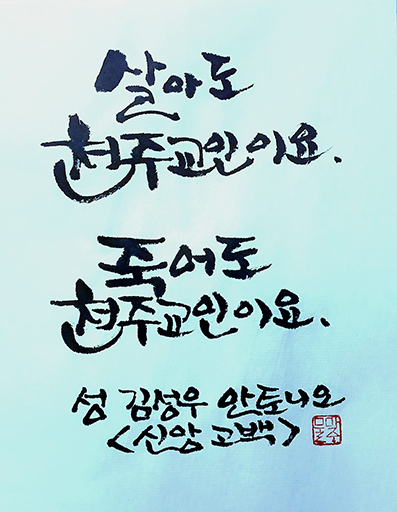 살아도
천주교인이요.
죽어도
천주교인이요.
성 김성우 안토니오
<신앙고백>